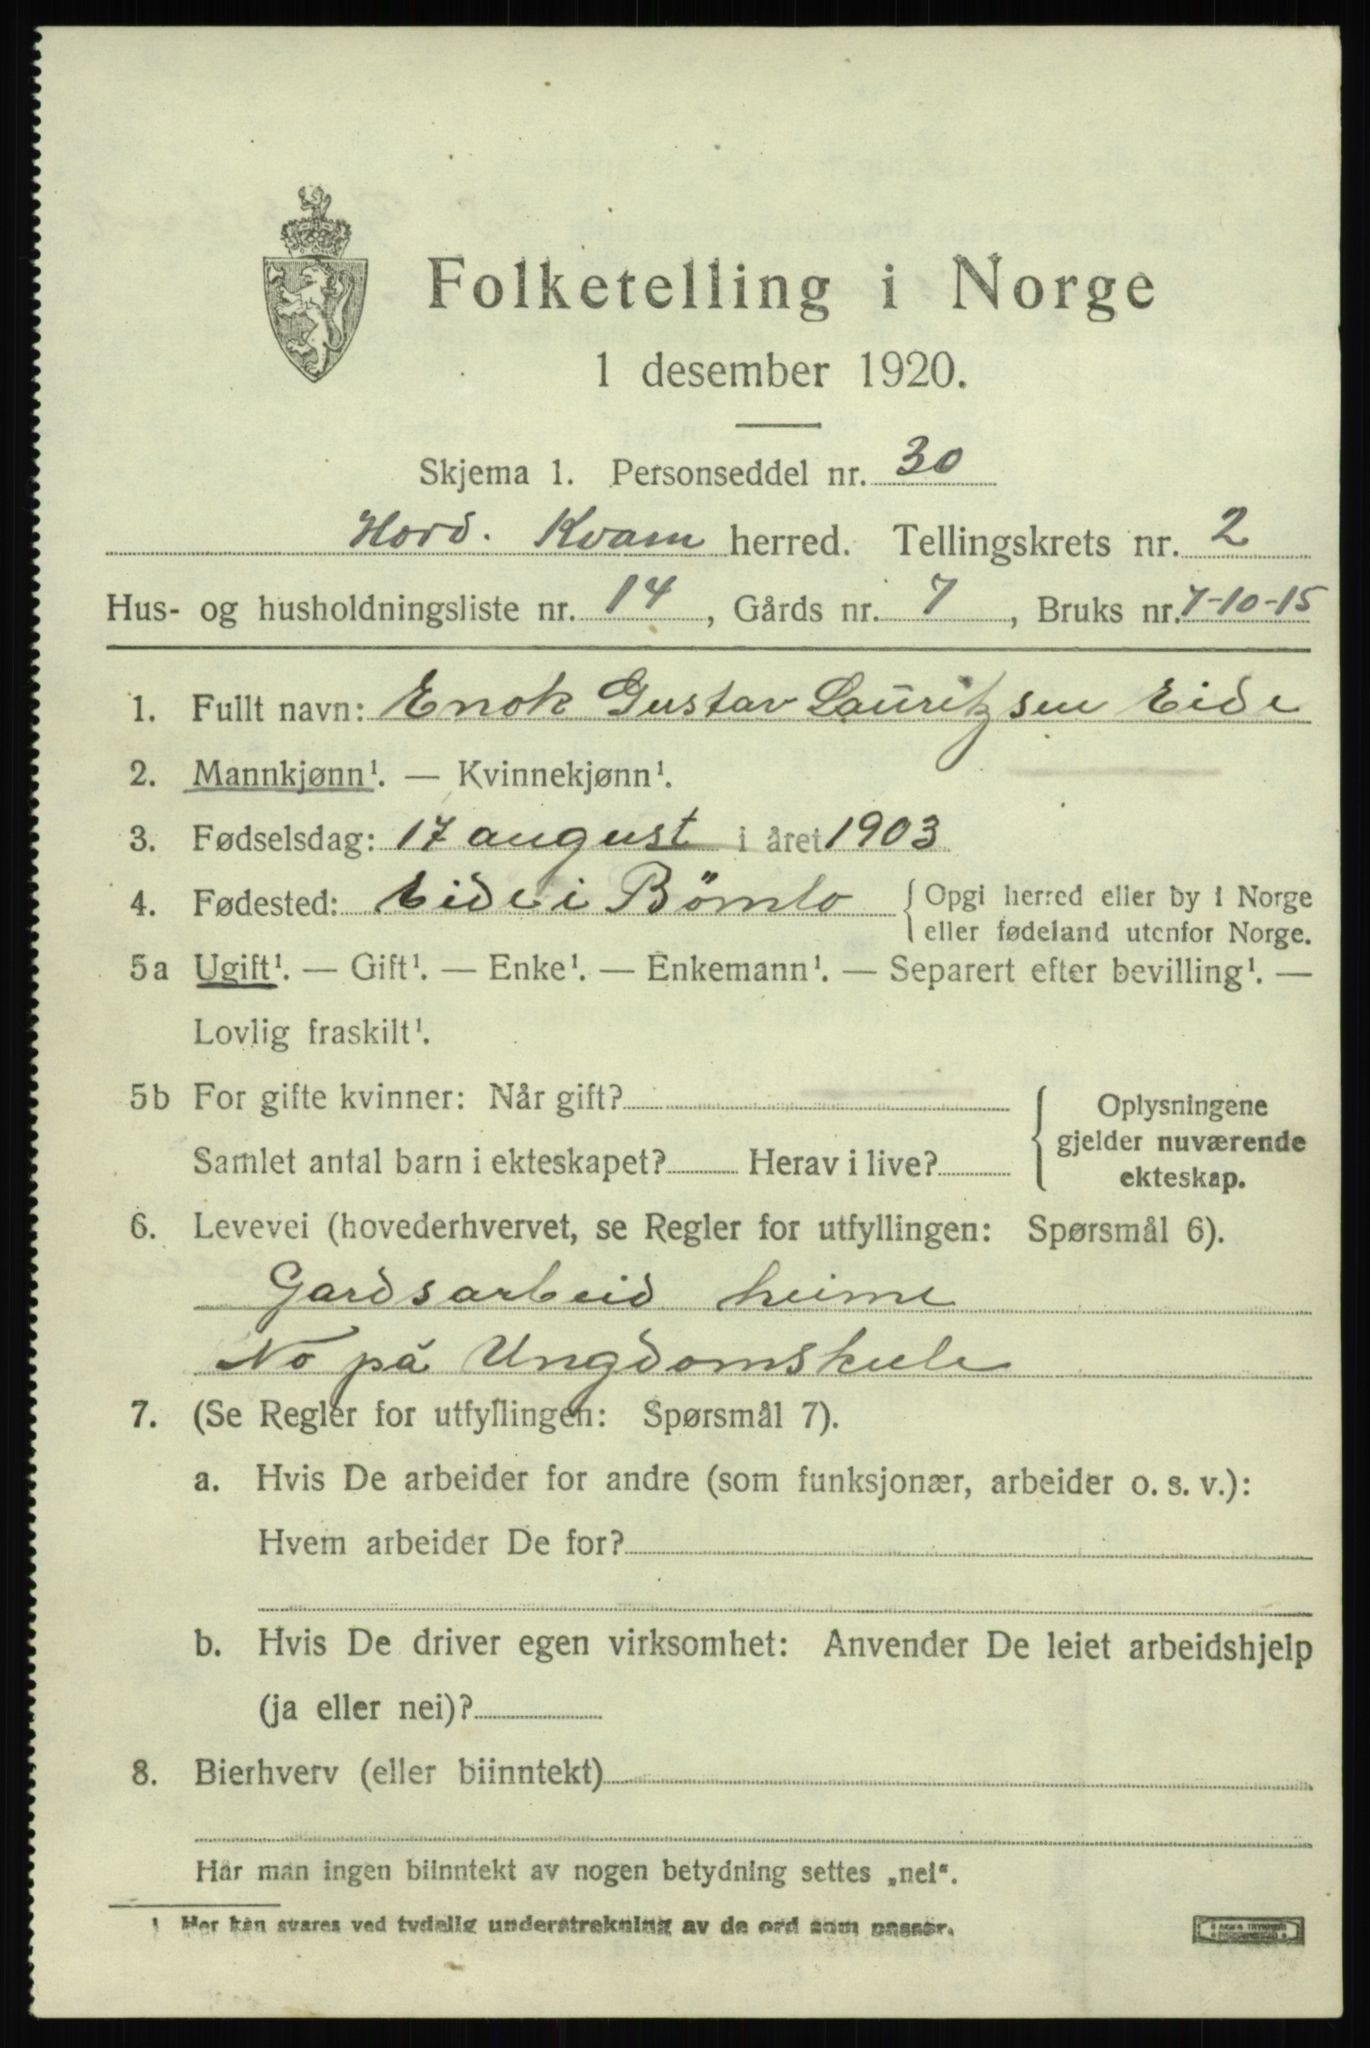 Folketelling i Norge
1 desember 1920.
Skjema 1. Personseddel nr. 30
Hord. Kvam herred. Tellingskrets nr. 2
Hus- og husholdningsliste nr. 14, Gårds nr. 7, Bruks nr. 7-10-15
1. Fullt navn: Enok Gustav Lauritzsen Eide
2. Mannkjønn¹. — Kvinnekjønn¹.
3. Fødselsdag: 17 august i året 1903
4. Fødested: Eide i Bömlo { Opgi herred eller by i Norge
eller fødeland utenfor Norge.
5a Ugift¹. — Gift¹. — Enke¹. — Enkemann¹. — Separert efter bevilling¹. —
Lovlig fraskilt¹.
5b For gifte kvinner: Når gift?
Samlet antal barn i ekteskapet? Herav i live?
{ Oplysningene
gjelder nuværende
ekteskap.
6. Levevei (hovederhvervet, se Regler for utfyllingen: Spørsmål 6).
Gardsarbeid heime
No på Ungdomskule
7. (Se Regler for utfyllingen: Spørsmål 7).
a. Hvis De arbeider for andre (som funksjonær, arbeider o. s. v.):
Hvem arbeider De for?
b. Hvis De driver egen virksomhet: Anvender De leiet arbeidshjelp
(ja eller nei)?
8. Bierhverv (eller biinntekt)
Har man ingen biinntekt av nogen betydning settes „nei“.
¹ Her kan svares ved tydelig understrekning av de ord som passer.